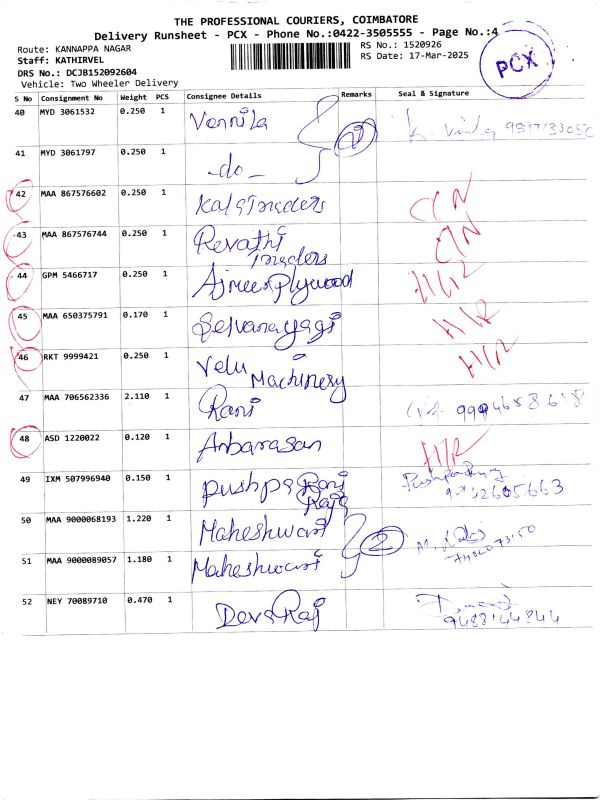 THE PROFESSIONAL COURIERS, COIMBATORE
Delivery Runsheet - PCX - Phone No.:0422-3505555 - Page No.:4
Route: KANNAPPA NAGAR RS No.: 1520926
Staff: KATHIRVEL RS Date: 17-Mar-2025
DRS No.: DCJB152092604
Vehicle: Two Wheeler Delivery
PCX
S No Consignment No Weight PCS Consignee Details Remarks Seal & Signature
40 MYD 3061532 0.250 1 Vennila
41 MYD 3061797 0.250 1 -do-
42 MAA 867576602 0.250 1 Kala Traders
43 MAA 867576744 0.250 1 Revathi Traders
44 GPM 5466717 0.250 1 Ajmeer plywood
45 MAA 650375791 0.170 1 Selvanayagi
46 RKT 9999421 0.250 1 Velu Machinery
47 MAA 706562336 2.110 1 Rani
48 ASD 1220022 0.120 1 Anbarasan
49 IXM 507996940 0.150 1 Pushpa Rani
50 MAA 9000068193 1.220 1 Maheshwari 2
51 MAA 9000089057 1.180 1 Maheshwari
52 NEY 70089710 0.470 1 DevaRaj